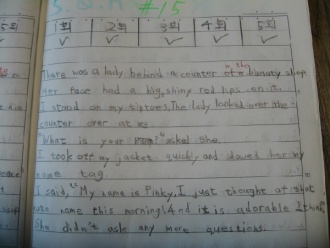 #15
5회 1회 2회 3회 4회 5회
There was a lady behind a counter of the beauty shop
Her face had a big, shiny red lips on it.
I stood on my tiptoes. The lady looked over the
counter over at me
"What is your name?" asked she.
I took off my jacket quickly and showed her my
name tag
I said, "My name is Pinky, I just thought of that
name this morning! And it is adorable I think"
She didn't ask any more questions.